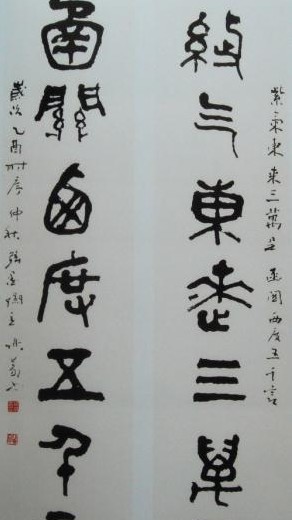 紫氣東來三萬里 函關西度五千言
紫气東來三萬
函關西度五千
歲次乙酉时序仲秋張